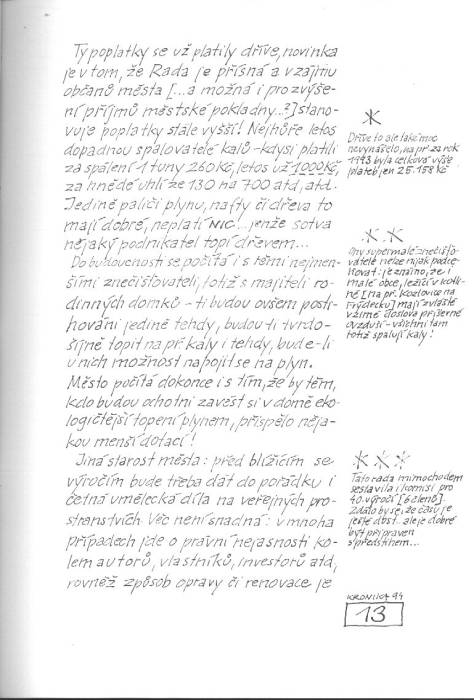 Ty poplatky se už platily dříve, novinka
je v tom, že Rada je přísná a v zájmu
občanů města [...a možná i pro zvýše-
ní příjmů městské pokladny..?] stano-
vuje poplatky stále vyšší! Nejhůře letos
dopadnou spalovatelé kalů - kdysi platili
za spálení 1 tuny 260 Kč, letos už 1000 Kč,
za hnědé uhlí ze 130 na 700 atd, atd.
Jedině paliči plynu, nafty či dřeva to
mají dobré, neplatí NIC... jenže sotva
nějaký podnikatel topí dřevem...
Do budoucnosti se počítá i s těmi nejmen-
šími znečišťovateli, totiž s majiteli ro-
dinných domků - ti budou ovšem posti-
hováni jedině tehdy, budou ti tvrdo-
šíjně topit na př kaly i tehdy, bude-li
u nich možnost napojit se na plyn.
Město počítá dokonce i s tím, že by těm,
kdo budou ochotni zavést si v domě eko-
logičtější topení plynem, přispělo něja-
kou menší dotací!
Jiná starost města: před blížícím se
výročím bude třeba dát do pořádku i
četná umělecká díla na veřejných pro-
stranstvích. Věc není snadná: v mnoha
případech jde o právní nejasnosti ko-
lem autorů, vlastníků, investorů atd,
rovněž způsob opravy či renovace je
*
Dříve to ale také moc
nevynášelo, na př. za rok
1993 byla celková výše
plateb jen 25.158 Kč
* *
Ony supermalé znečišťo-
vatele nelze nijak podce-
ňovat: je známo, že i
malé obce, ležící v kotli-
ně [na př. Kozlovice na
Frýdecku] mají zvláště
v zimě doslova příšerné
ovzduší - všichni tam
totiž spalují kaly!
* * *
Tato rada mimochodem
sestavila i komisi pro
40. výročí [6 členů].
Zdálo by se, že času je
ještě dost, ale je dobré
být připraven
s předstihem...
KRONIKA 94
13